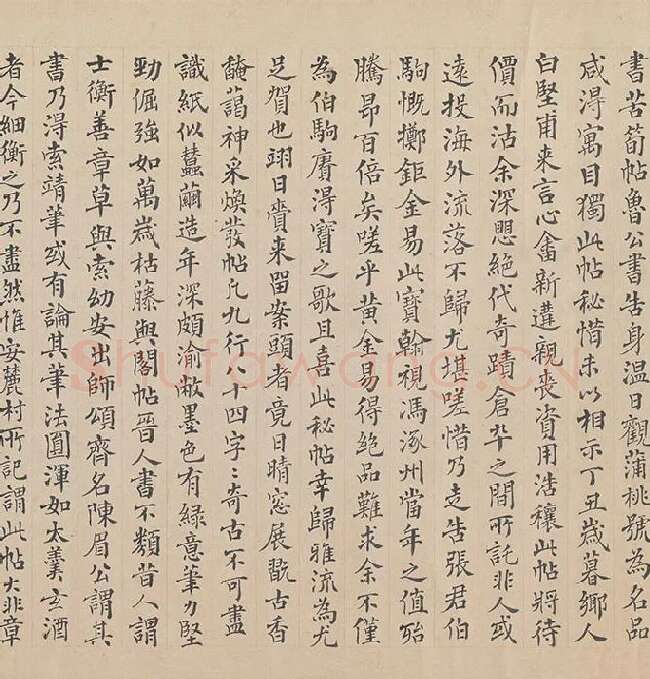 書苦筍帖魯公書告身溫日觀蒲桃號為名品
咸得寓目獨此帖秘惜未以相示丁丑歲暮鄉人
白堅甫來言心畬新遭親喪資用浩穰此帖將待
價而沽余深懼絕代奇蹟倉卒之間所託非人或
遠投海外流落不歸尤堪嗟惜乃走告張君伯
駒慨擲鉅金易此寶翰視馮涿州當年之值殆
騰昂百倍矣嗟乎黃金易得絕品難求余不僅
為伯駒賡得寶之歌且喜此秘帖幸歸雅流為尤
足賀也翊日賚來留案頭者竟日晴窗展翫古香
馣藹神采煥發帖凡九行八十四字字奇古不可盡
識紙似蠶繭造年深頗渝敝墨色有綠意筆力堅
勁倔強如萬歲枯藤與閣帖晉人書不類昔人謂
士衡善章草與索幼安出師頌齊名陳眉公謂其
書乃得索靖筆或有論其筆法圓渾如太羹玄酒
者今細衡之乃不盡然惟安麓村所記謂此帖大非章
Shufawang.CN